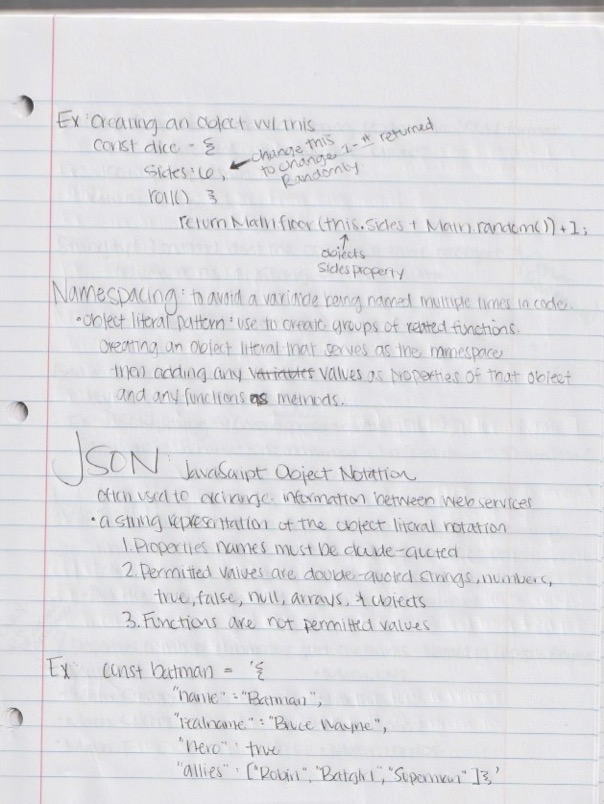 Ex: creating an object w/ this
const dice = {
sides: 6, ← change this to change 1-# returned Randomly
roll() }
return Math.floor (this.sides + Math.random()) + 1;
↑
objects
sides property
Namespacing: to avoid a variable being named multiple times in code.
• Object literal pattern: use to create groups of related functions.
creating an object literal that serves as the namespace
then adding any variables values as properties of that object
and any functions as methods.
JSON: JavaScript Object Notation
often used to exchange information between web services
• a string representation of the object literal notation
1. Properties names must be double-quoted
2. Permitted values are double-quoted strings, numbers,
true, false, null, arrays, & objects
3. Functions are not permitted values
Ex: const batman = '{
"name": "Batman",
"realname": "Bruce Wayne",
"hero": true
"allies": ["Robin", "Batgirl", "Superman" ]};'